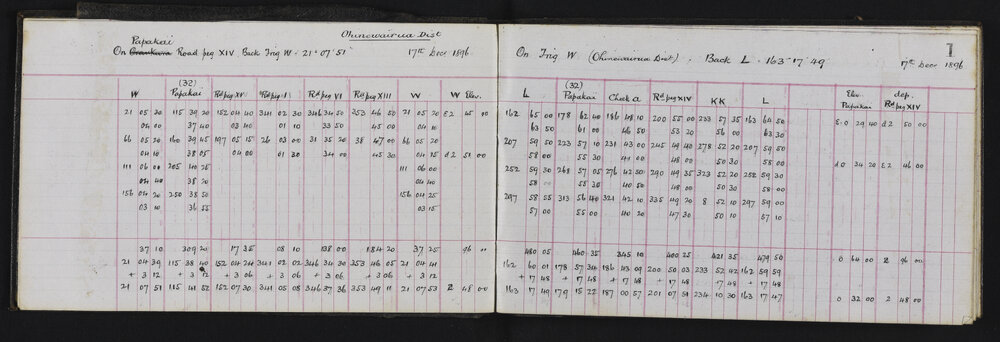 Ohinewairua Dist
Papakai
On Road peg XIV Back Trig W - 21° 07' 51" 17th Decr 1896
(32)
W Papakai Rd peg XV Rd peg VI Rd peg XIII W W Elev.
21 05 20 115 39 20 152 04 40 341 02 30 346 34 50 353 46 50 21 05 20 E2 45 00
04 00 37 40 03 40 01 10 33 50 45 00 04 10
66 05 20 160 39 45 197 05 15 26 03 00 31 35 20 38 47 00 66 05 20
04 10 38 05 04 00 01 30 34 00 45 30 04 15 d2 51 00
111 06 00 205 40 25 111 06 00
04 40 38 20 04 40
156 04 20 250 38 50 156 04 25
03 10 36 55 03 15
37 10 309 20 17 35 08 10 138 00 184 20 37 25 96 "
21 04 39 115 38 40 152 04 24 341 02 02 346 34 30 353 46 05 21 04 41
+ 3 12 + 3 12 + 3 06 + 3 06 + 3 06 + 3 06 + 3 12
21 07 51 115 41 52 152 07 30 341 05 08 346 37 36 353 49 11 21 07 53 2 48 00
1
On Trig W (Ohinewairua Dist) . Back L . 163° 17' 49 17th Decr 1896
(32) Elev. dep.
L Papakai Check A Rd peg XIV KK L Papakai Rd peg XIV
162 65 00 178 62 40 186 48 10 200 55 00 233 57 35 163 64 50 E0 29 40 d2 50 00
63 50 61 00 46 50 53 20 56 00 63 30
207 59 50 223 57 10 231 43 00 245 49 40 278 52 20 207 59 50
58 00 55 30 41 00 48 00 50 30 58 00 d0 34 20 E2 46 00
252 59 30 268 57 05 276 42 50 290 49 35 323 52 20 252 59 30
58 00 55 35 40 50 48 00 50 30 58 00
297 58 25 313 56 40 321 42 10 335 49 20 8 52 10 297 59 00
57 00 55 00 40 20 47 30 50 10 57 10
480 05 460 35 345 10 400 25 421 35 479 50 0 64 00 2 96 00
162 60 01 178 57 34 186 43 09 200 50 03 233 52 42 162 59 59
+ 17 48 + 17 48 + 17 48 + 17 48 + 17 48 + 17 48
163 17 49 179 15 22 187 00 57 201 07 51 234 10 30 163 17 47 0 32 00 2 48 00